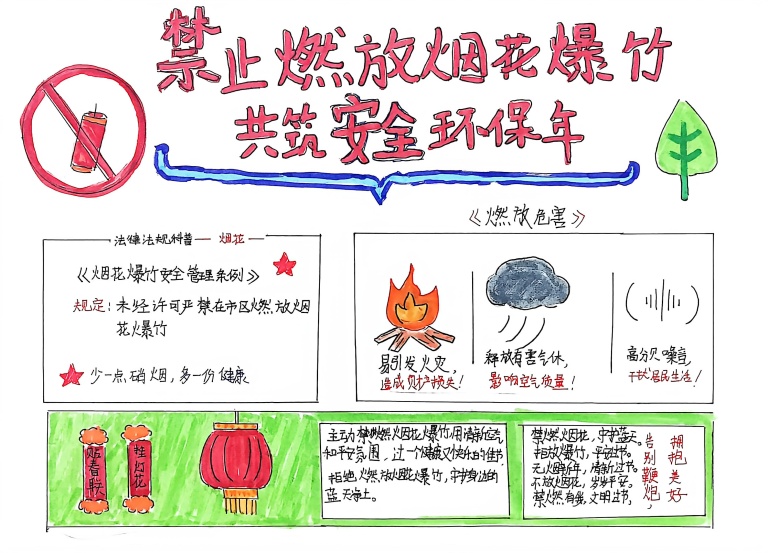 禁止燃放烟花爆竹
共筑安全环保年
《燃放危害》
法律法规科普—烟花
《烟花爆竹安全管理条例》
规定：未经许可严禁在市区燃放烟
花爆竹
少一点硝烟，多一份健康
易引发火灾，
造成财产损失！
释放有害气体，
影响空气质量！
高分贝噪音，
干扰居民生活！
贴春联
挂灯花
主动禁燃烟花爆竹，用清新空气
和平安氛围，过一个健康又快乐的佳节
拒绝燃放烟花爆竹，守护身边的
蓝天净土。
禁燃烟花，守护蓝天。
拒放爆竹，平安过节。
无火新年，清新过节。
不放烟花，岁岁平安。
禁燃有我，文明过节，
告别鞭炮，
拥抱美好